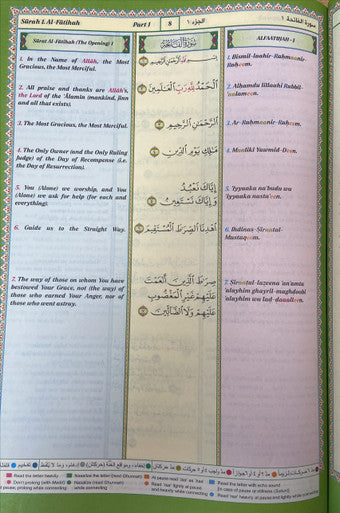 Sûrah 1. Al-Fâtihah
Part 1
8
الجزء ١
سورة الفاتحة ١
Sûrat Al-Fâtihah (The Opening) 1
1. In the Name of Allâh, the Most
Gracious, the Most Merciful.
2. All praise and thanks are Allâh's,
the Lord of the 'Âlamîn (mankind, jinn
and all that exists).
3. The Most Gracious, the Most Merciful.
4. The Only Owner (and the Only Ruling
Judge) of the Day of Recompense (i.e.
the Day of Resurrection).
5. You (Alone) we worship, and You
(Alone) we ask for help (for each and
everything).
6. Guide us to the Straight Way.
7. The way of those on whom You have
bestowed Your Grace, not (the way) of
those who earned Your Anger, nor of
those who went astray.
سُورَةُ الفَاتِحَةِ
بِسْمِ اللَّهِ الرَّحْمَٰنِ الرَّحِيمِ
الْحَمْدُ لِلَّهِ رَبِّ الْعَالَمِينَ
الرَّحْمَٰنِ الرَّحِيمِ
مَالِكِ يَوْمِ الدِّينِ
إِيَّاكَ نَعْبُدُ
وَإِيَّاكَ نَسْتَعِينُ
اهْدِنَا الصِّرَاطَ الْمُسْتَقِيمَ
صِرَاطَ الَّذِينَ أَنْعَمْتَ
عَلَيْهِمْ غَيْرِ الْمَغْضُوبِ
عَلَيْهِمْ وَلَا الضَّالِّينَ
ALFAATIḤAH - 1
1. Bismil-laahir-Rahmaanir-
Raheem.
2. Alhamdu lillaahi Rabbil-
'aalameen.
3. Ar-Rahmaanir-Raheem.
4. Maaliki Yawmid-Deen.
5. Iyyaaka na'budu wa
iyyaaka nasta'een.
6. Ihdinas-Siraatal-
Mustaqeem.
7. Siraatal-lazeena an'amta
'alayhim ghayril-maghdoobi
'alayhim wa lad-daaalleen.
Read the letter heavily
Nasalize the (Noon)
At pause read 'taa' as 'haa'
Read the letter with echo sound